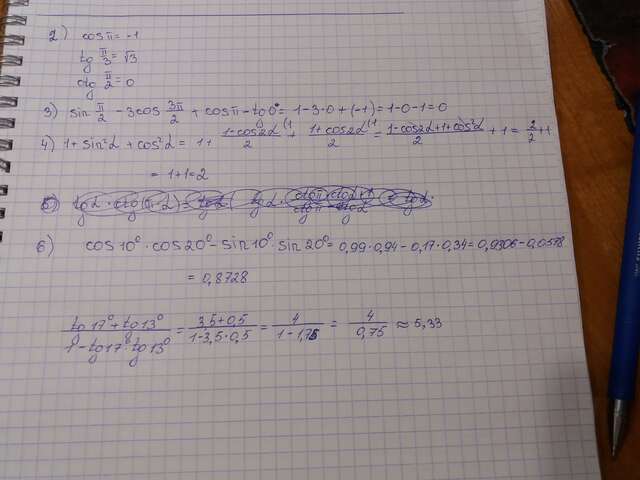 2) cos π = -1
tg π/3 = √3
ctg π/2 = 0
3) sin π/2 - 3cos 3π/2 + cos π - tg 0° = 1 - 3·0 + (-1) = 1-0-1 = 0
4) 1 + sin²α + cos²α = 1 + (1-cos2α)/2 + (1+cos2α)/2 = (1-cos2α+1+cos²α)/2 + 1 = 2/2 + 1
= 1+1=2
6) cos10° · cos20° - sin10° · sin20° = 0,99·0,94 - 0,17·0,34 = 0,9306 - 0,0578
= 0,8728
(tg17° + tg13°)/(1 - tg17° · tg13°) = (3,5+0,5)/(1-3,5·0,5) = 4/(1-1,75) = 4/0,75 ≈ 5,33